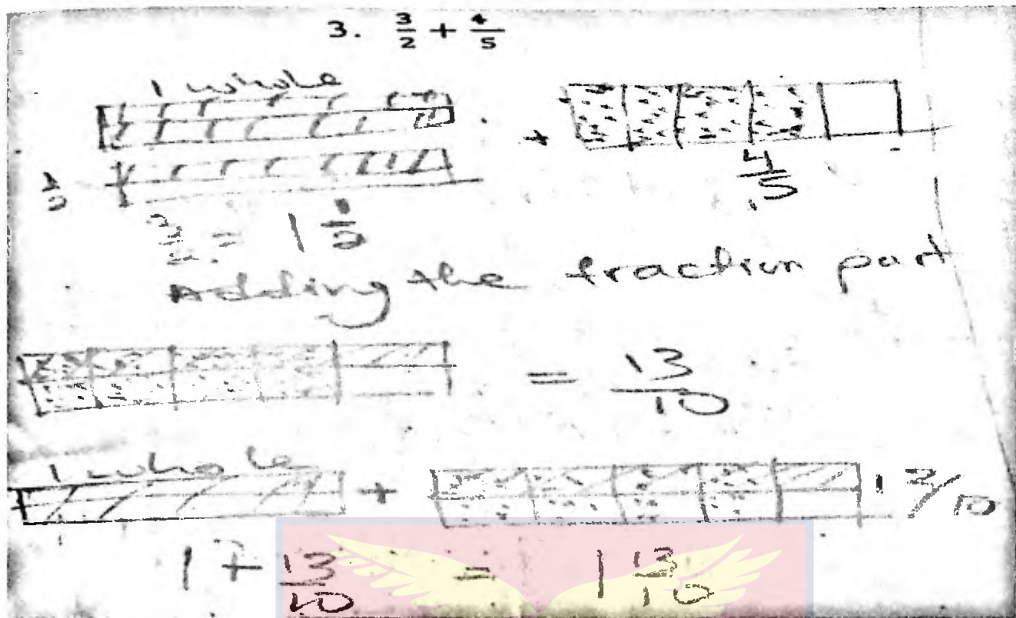 3. 3/2 + 4/5
1 whole
+
1/2
4/5
3/2 = 1 1/2
Adding the fraction part
= 13/10
1 whole
+
13/10
1 + 13/10 = 1 13/10